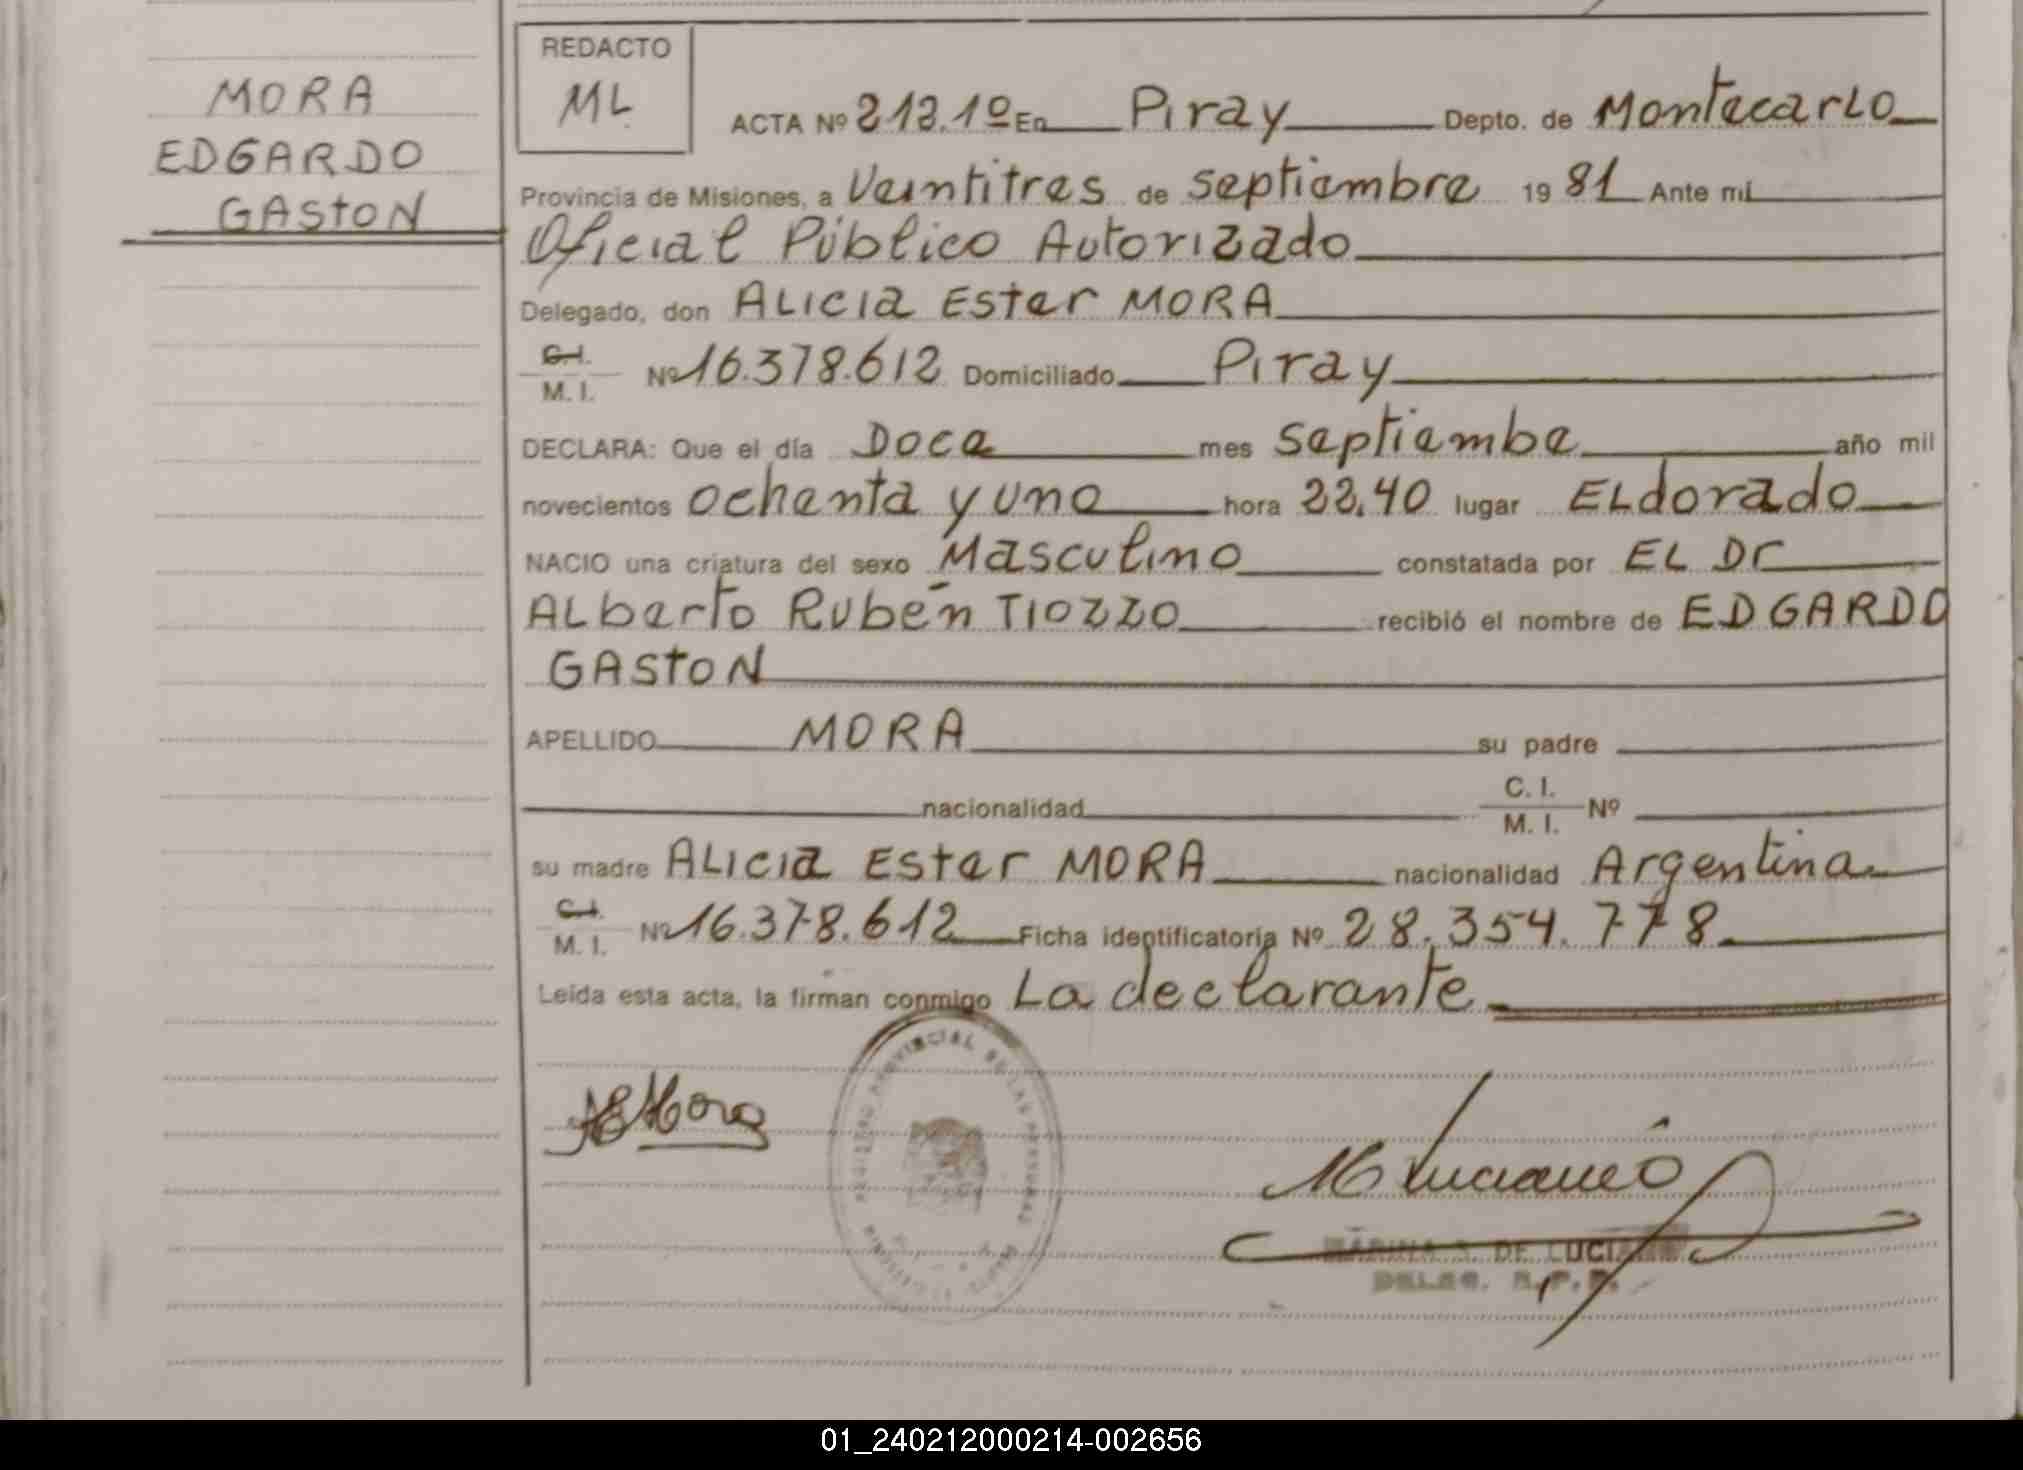 MORA
EDGARDO
GASTON
REDACTO
ML
ACTA Nº 212.1º En Piray Depto. de Montecarlo
Provincia de Misiones, a Veintitres de septiembre 19 81 Ante mí
Oficial Público Autorizado
Delegado, don ALICIA Ester MORA
C.I.
M. I. Nº 16.378.612 Domiciliado Piray
DECLARA: Que el día Doce mes septiembe año mil
novecientos ochenta y uno hora 22,40 lugar ELdorado
NACIO una criatura del sexo Masculino constatada por EL Dr
ALberto Rubén TIOZZO recibió el nombre de EDGARDO
GASTON
APELLIDO MORA su padre
nacionalidad C. I.
M. I. Nº
su madre ALICIA Ester MORA nacionalidad Argentina
C.I.
M. I. Nº 16.378.612 Ficha identificatoria Nº 28.354.778
Leída esta acta, la firman conmigo La declarante
AEMora
REGISTRO PROVINCIAL DE LAS PERSONAS
MLuciano
DE LUCIANO
DELEG. R.P.P.
01_240212000214-002656